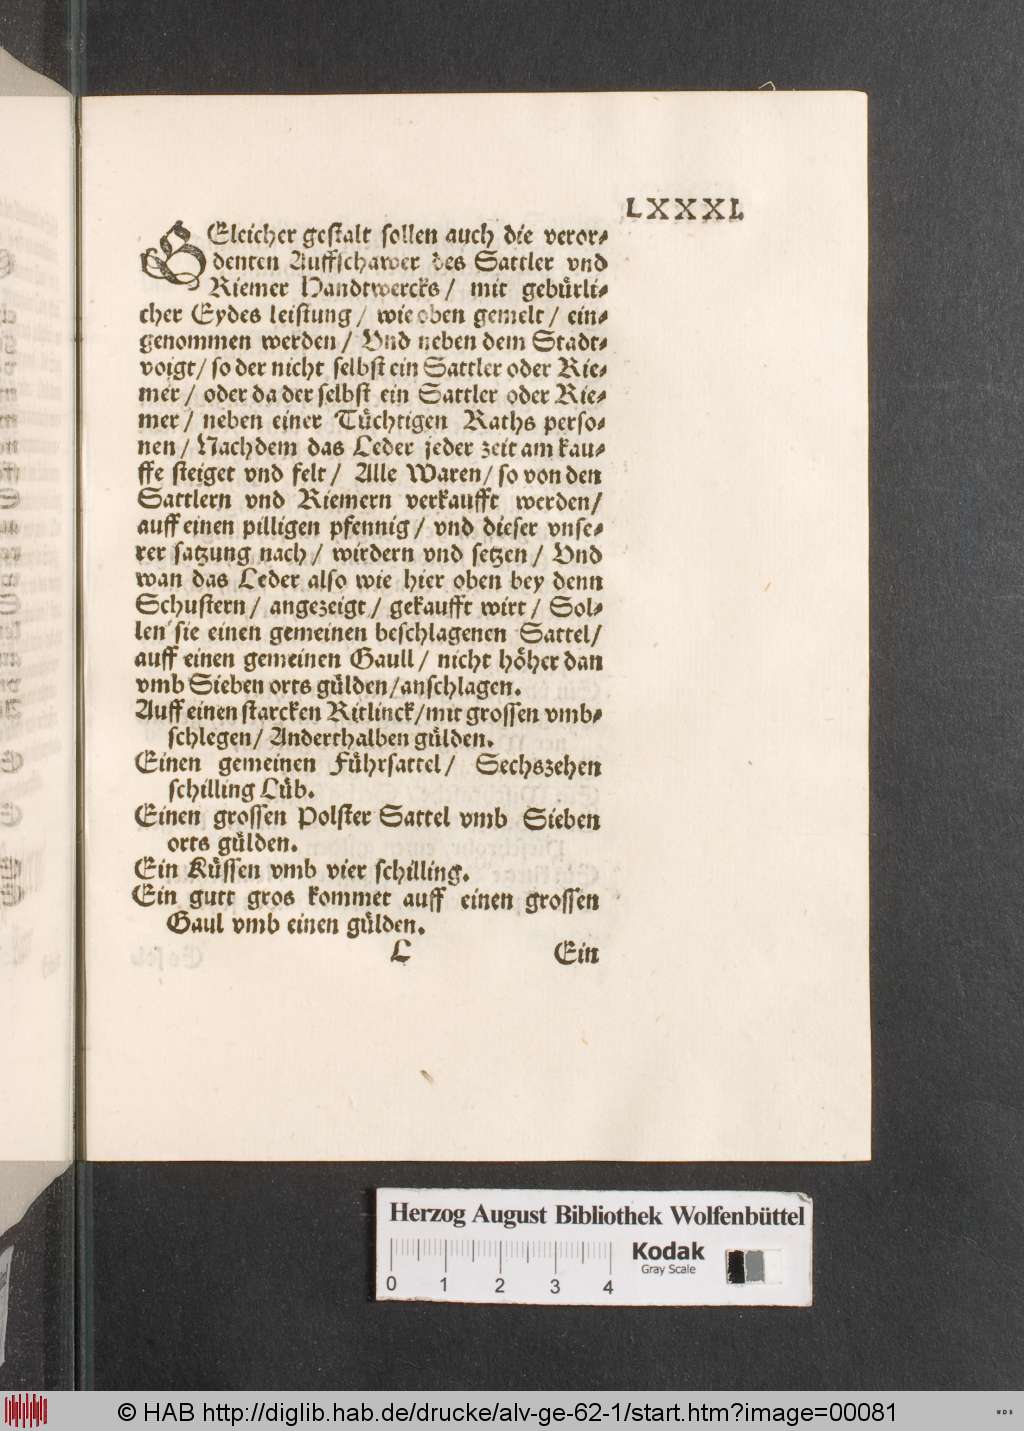 LXXXI.
GEleicher gestalt sollen auch die veror-
denten Auffschawer des Sattler vnd
Riemer Handtwercks / mit gebürli-
cher Eydes leistung / wie oben gemelt / ein-
genommen werden / Vnd neben dem Stadt-
voigt / so der nicht selbst ein Sattler oder Rie-
mer / oder da der selbst ein Sattler oder Rie-
mer / neben einer Tüchtigen Raths perso-
nen / Nachdem das Leder jeder zeit am kau-
ffe steiget vnd felt / Alle Waren / so von den
Sattlern vnd Riemern verkaufft werden /
auff einen pilligen pfennig / vnd dieser vnse-
rer satzung nach / wirdern vnd setzen / Vnd
wan das Leder also wie hier oben bey denn
Schustern / angezeigt / gekaufft wirt / Sol-
len sie einen gemeinen beschlagenen Sattel /
auff einen gemeinen Gaull / nicht höher dan
vmb Sieben orts gülden / anschlagen.
Auff einen starcken Ritlinck / mit grossen vmb-
schlegen / Anderthalben gülden.
Einen gemeinen Führsattel / Sechszehen
schilling Lüb.
Einen grossen Polster Sattel vmb Sieben
orts gülden.
Ein Küssen vmb vier schilling.
Ein gutt gros kommet auff einen grossen
Gaul vmb einen gülden.
L Ein
Herzog August Bibliothek Wolfenbüttel
Kodak
Gray Scale
0 1 2 3 4
© HAB http://diglib.hab.de/drucke/alv-ge-62-1/start.htm?image=00081